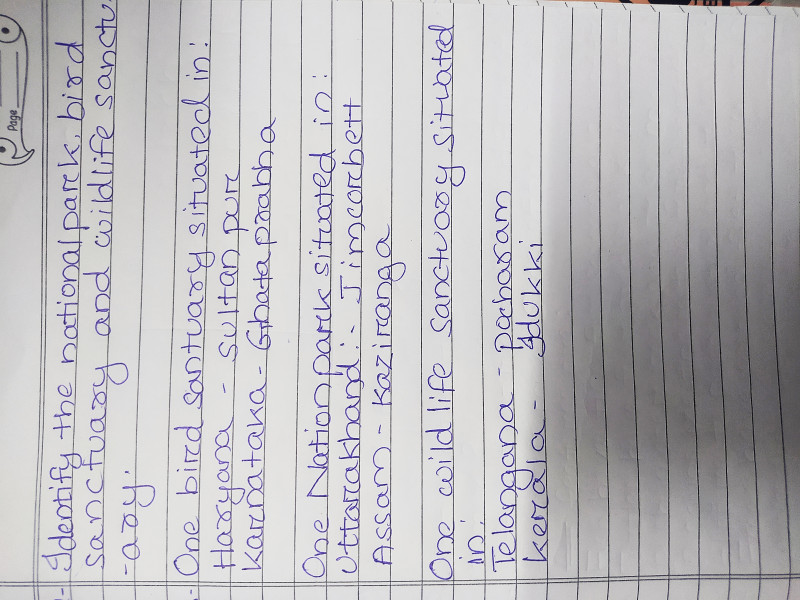 Page
- Identify the national park, bird
sanctuary and wildlife sanctu.
-ary.
- One bird santuary situated in:
Haryana - Sultan pur
Karnataka - Ghataprabha
One Nation park situated in:
Uttarakhand:- Jimcorbett
Assam - Kaziranga
One wildlife sanctuary situated
in:
Telangana - pocharam
Kerala - Idukki